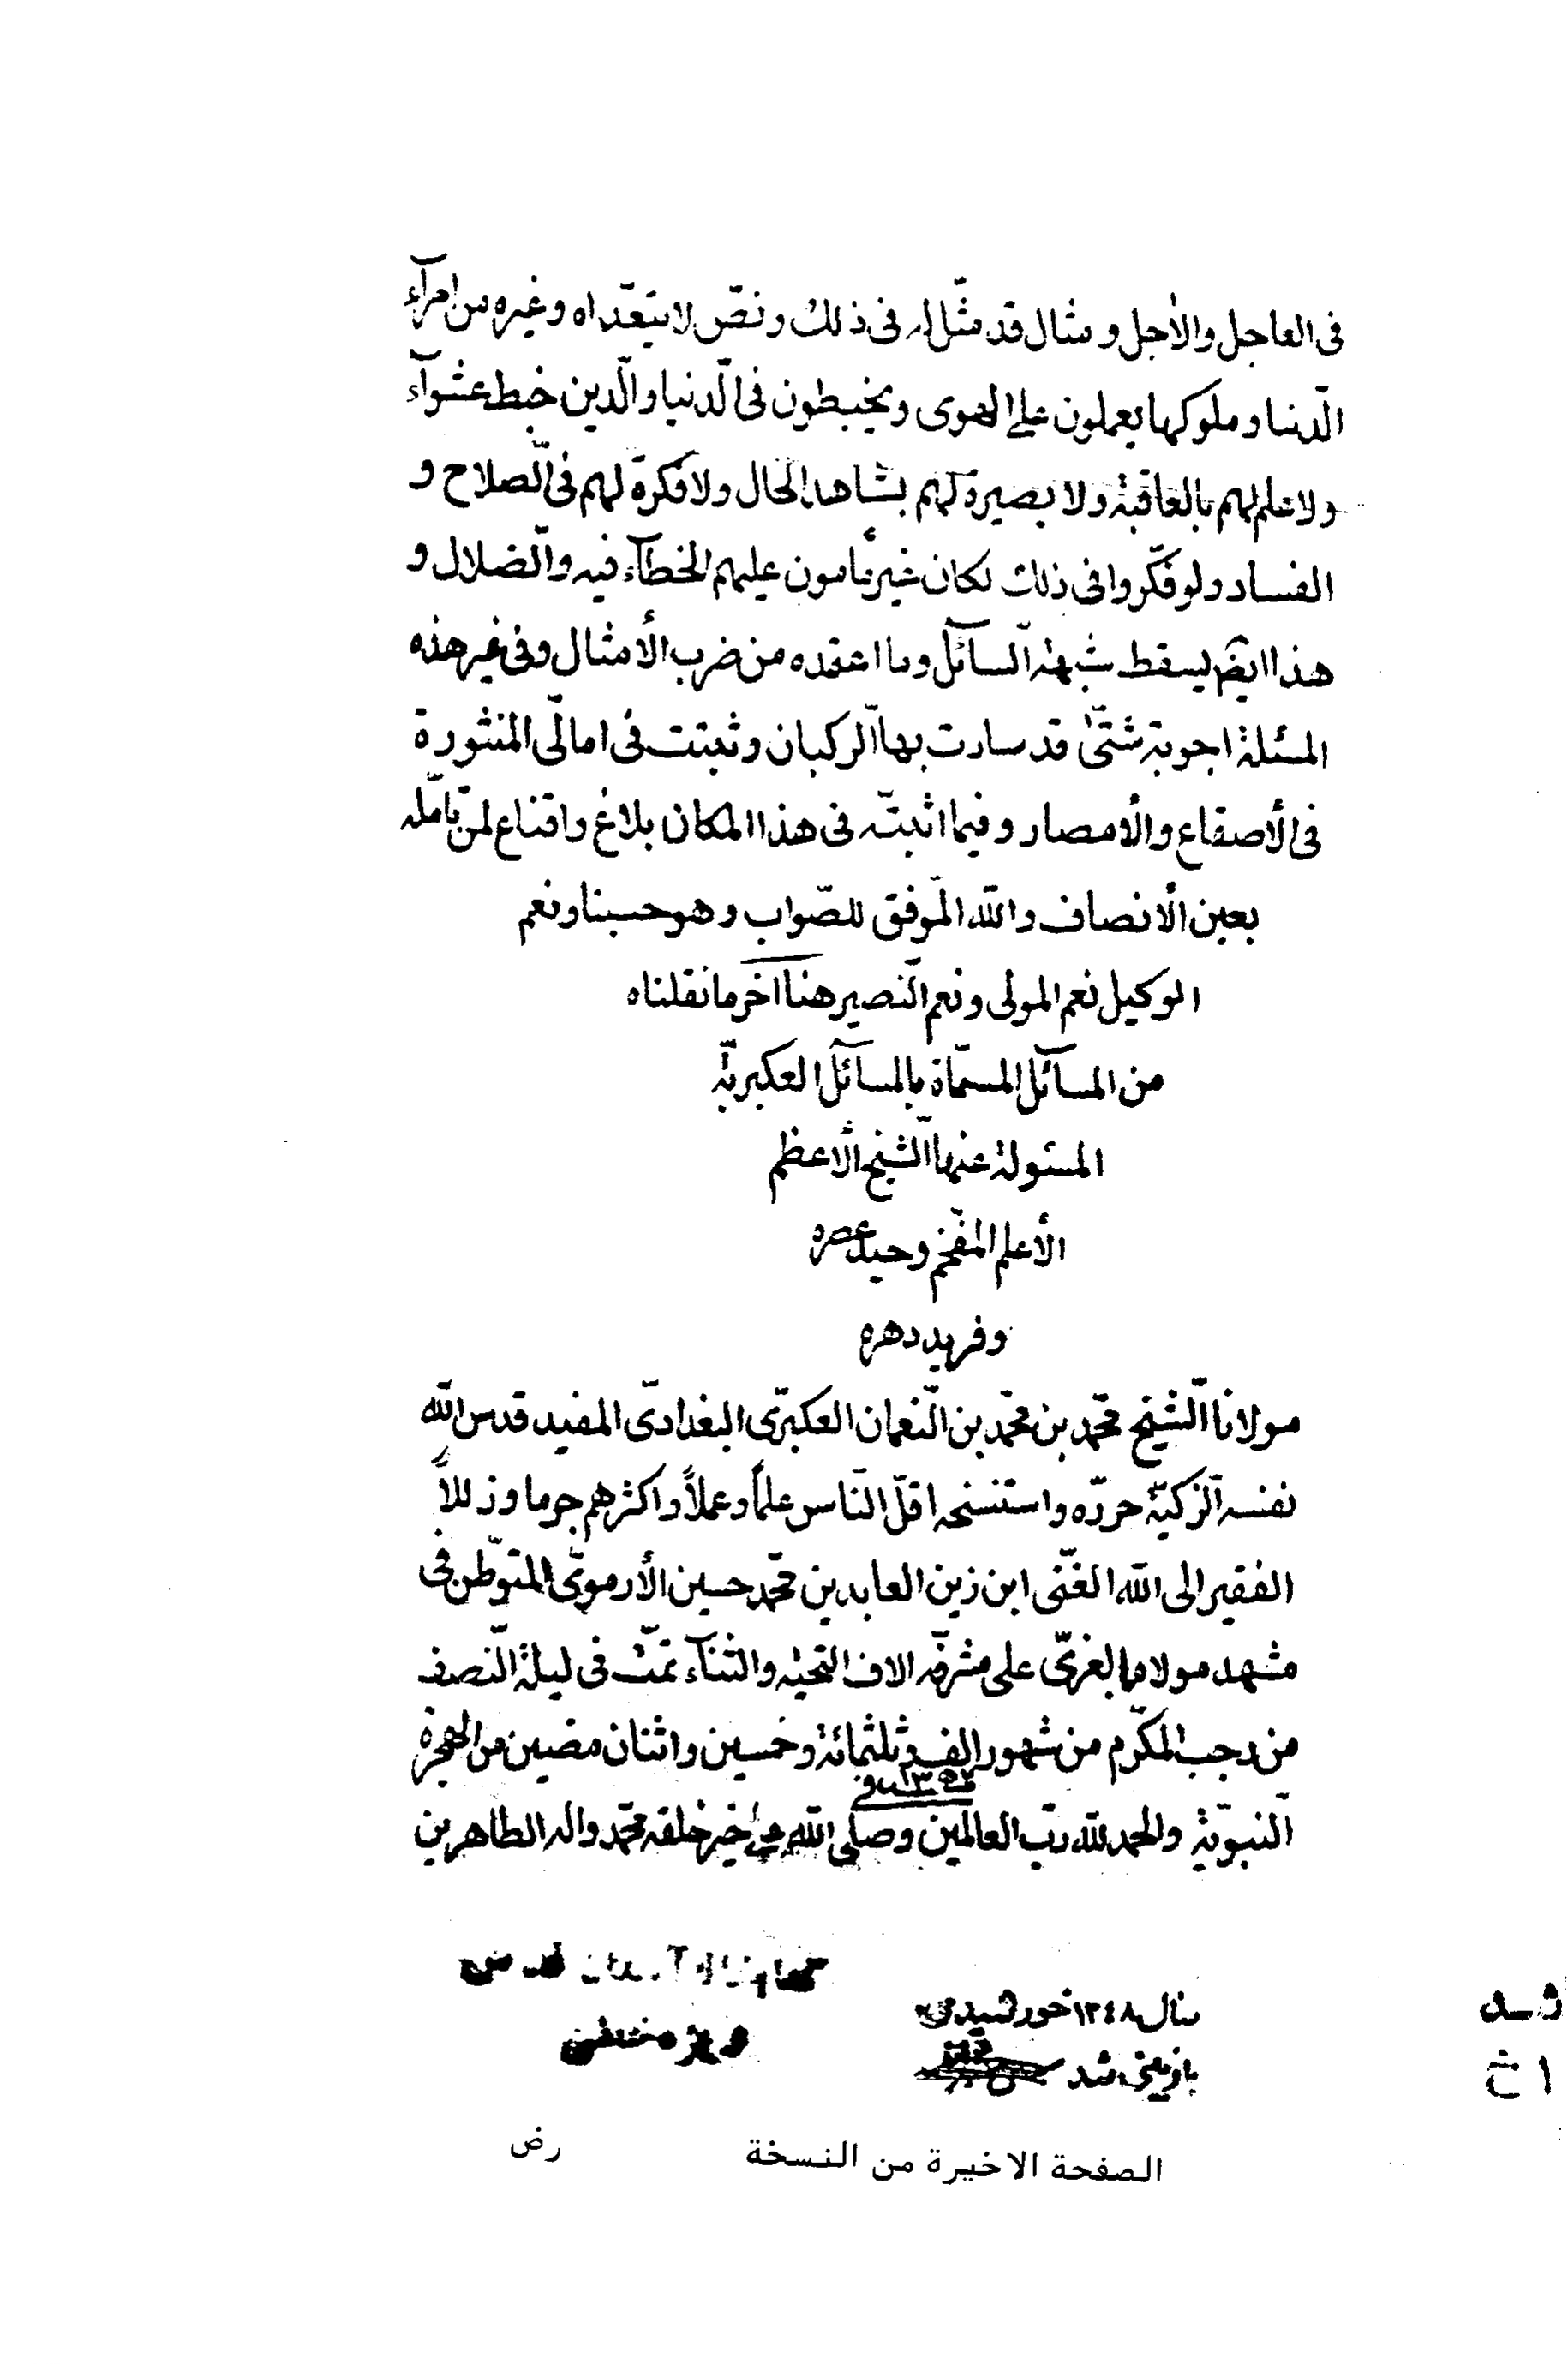 فى العاجل والاٰجل و مثال قد مثّل له فى ذلك ونصّ لا يتعّداه وغيره من امرآء
الّدنيا وملوكها يعملون على الهوى ويخبطون فى الّدنيا والّدين خبط عشوآء
ولا علم لهم بالعاقبة ولا بصيرة لهم بشاهد الحال ولا فكرة لهم فى الّصلاح و
الفساد ولو فكّروا فى ذلك لكان غير مأمون عليهم الخطآء فيه والّضلال و
هذا ايضم يسقط شبهة الّسآئل وما اعتمده من ضرب الأمثال وفى غير هذه
المسئلة اجوبة شتّىٰ قد سارت بها الّركبان وثبتت فى امالّى المنثورة
فى الأصقاع والأمصار وفيما اثبتّه فى هذا المكان بلاغ واقناع لمن تأمّله
بعين الأنصاف والله المّوفق للصّواب وهو حسبنا ونعم
الوكيل نعم المولى ونعم الّنصير هنا اخر ما نقلناه
من المسآئل المسمّاة بالمسآئل العكبريّة
المسئولة عنها الّشيخ الأعظم
الأعلم المفّخم وحيد عصره
وفريد دهره
مولانا الّشيخ محّمد بن محّمد بن الّنعمان العكبرّى البغدادّى المفيد قدس الله
نفسه الّزكيّة حرّره واستنسخه اقلّ النّاس علماً وعملاً واكثرهم جرما وزللاً
الفقير الى الله الغّنى ابن زين العابدين محّمد حسين الأرموّى المتوّطن فى
مشهد مولاه بالغرّى على مشرفّه الاف التحيّة والثنآء تمّت فى ليلة الّنصف
من رجب المكرّم من شهور الف وثلثمائة وخمسين واثنان مضين من الهجرة
١٣٥٢
الّنبوّية والحمد للّه ربّ العالمين وصلى الله على خير خلقه محّمد واله الطاهرين
قدس
سال ١٣٤٨ خورشيدى
بازبينى شد
الصفحة الاخيرة من النسخة رض